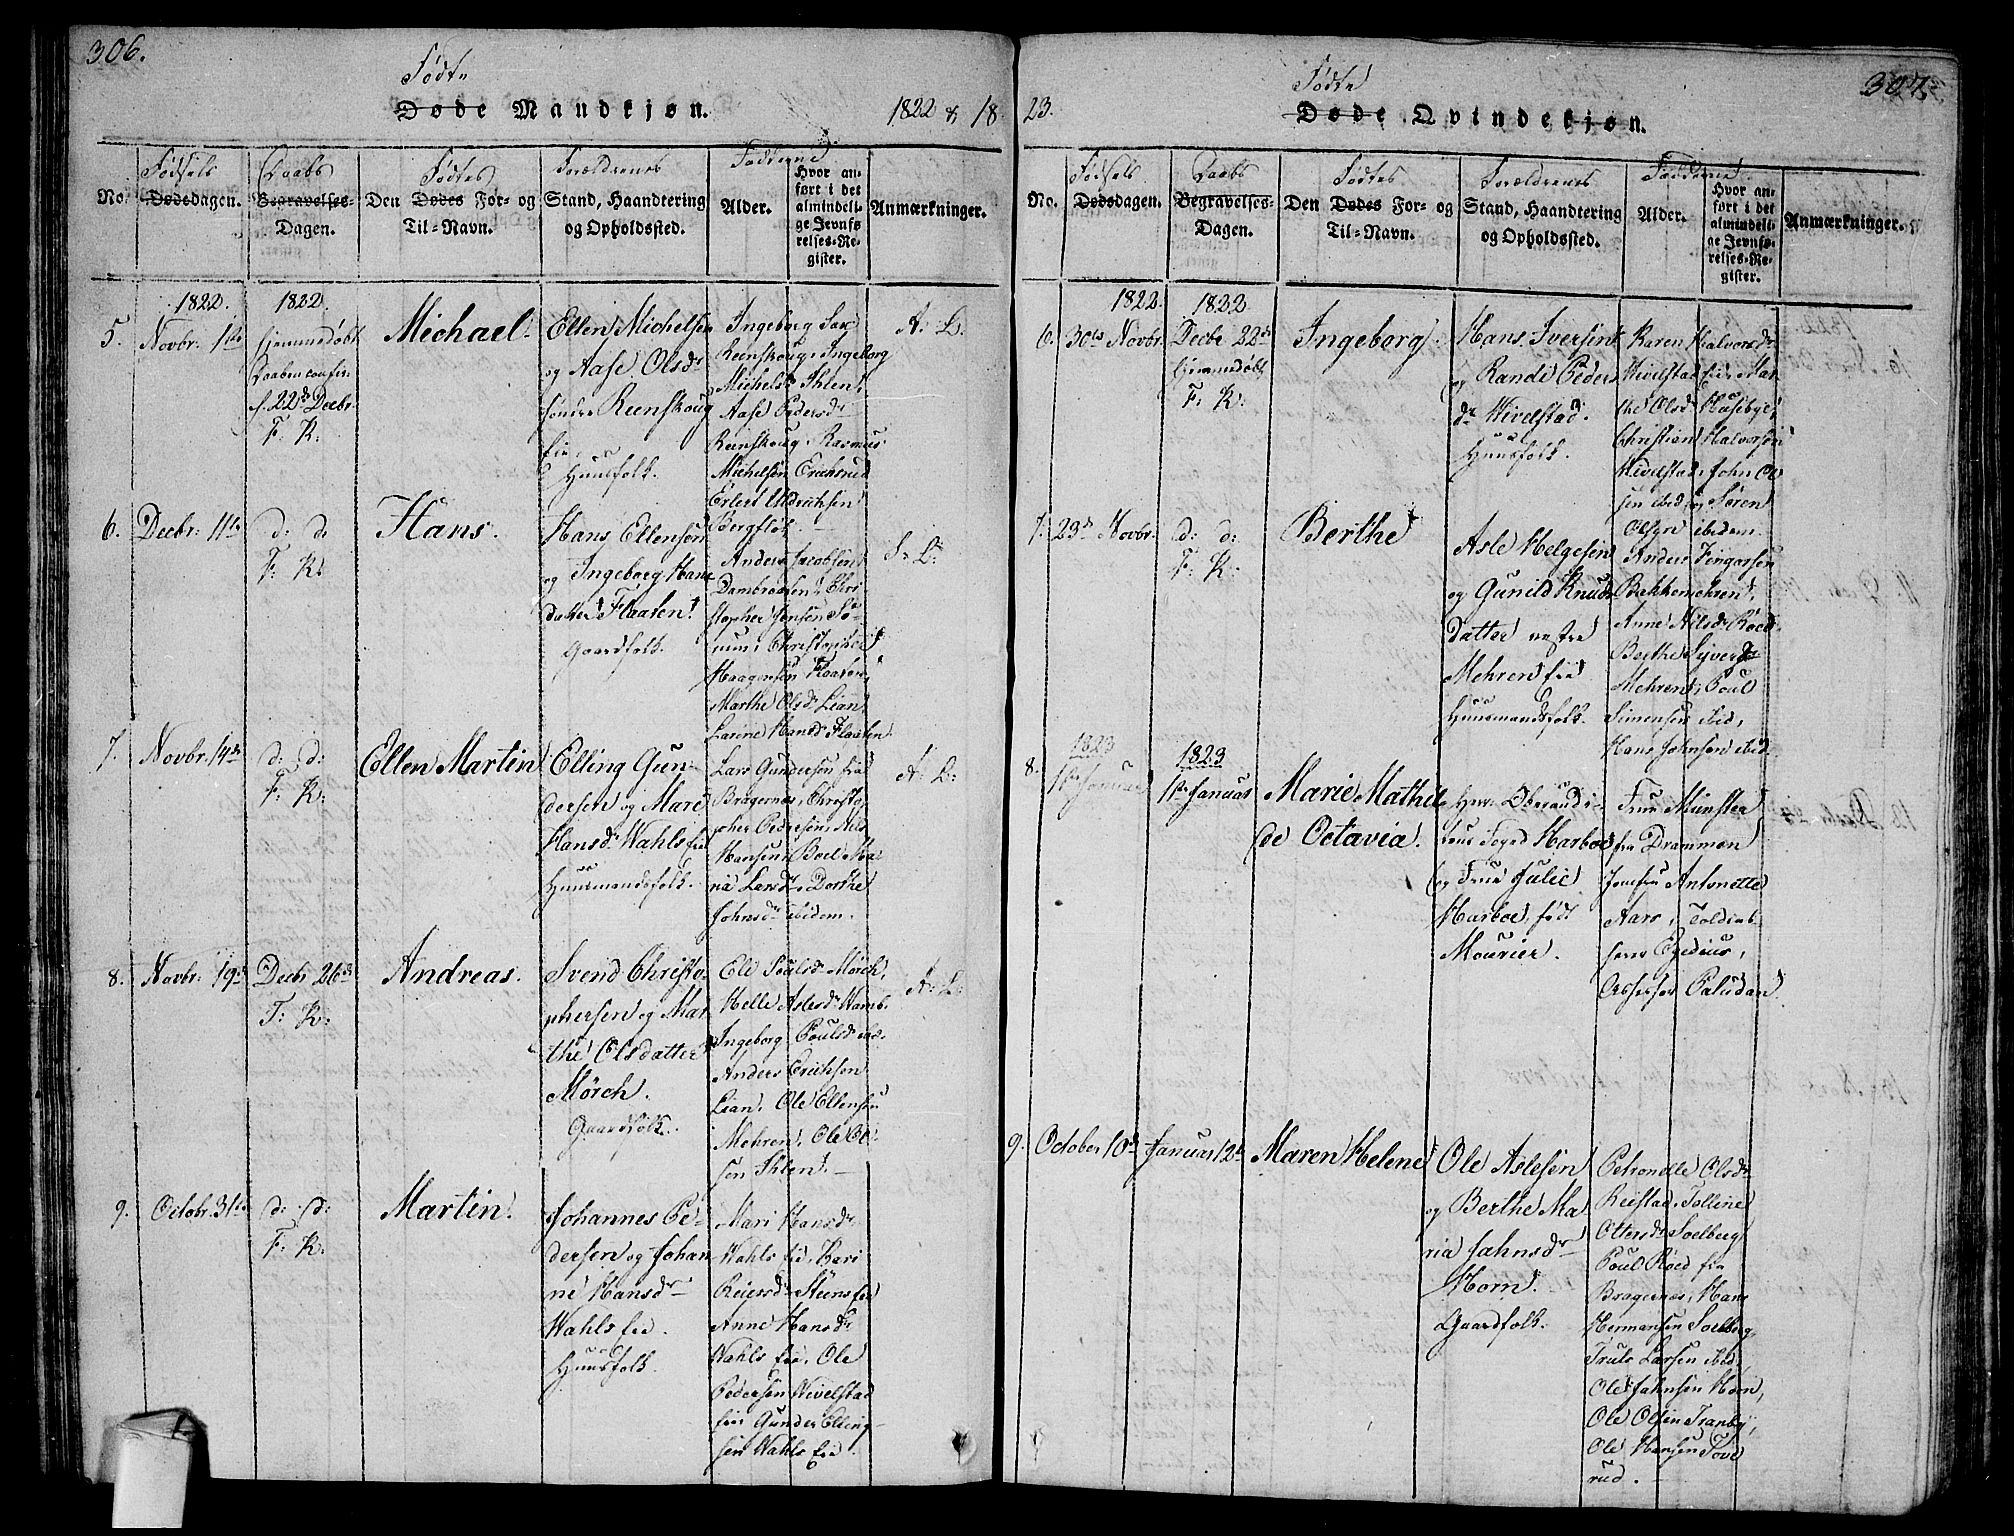 306.
Födte
Døde Mandkjøn.
1822 & 18
Fødsels
Daabs
Fødtes
Forældrenes
Fadderne
No.
Dødsdagen.
Begravelses-
Dagen.
Den Dødes For- og
Til-Navn.
Stand, Haandtering
og Opholdssted.
Alder.
Hvor an-
ført i det
almindeli-
ge Jevnfø-
relses-Re-
gister.
Anmærkninger.
5.
1822.
Novbr. 1ste
1822
hjemmedöbt
Daaben confir.
d. 22de Decbr.
F: K:
Michael
Ellen Michelsen
og Aase Olsdr
söndre Reenskoug
eie.
Huusfolk.
Ingeborg
Reenskoug, Ingeborg
Michelsdr Ihlen,
Aase Pedersdr
Reenskoug, Rasmus
Michelsen Eriksrud
Erlert Uldrichsen
Bergflöt.
A: L:
6.
Decbr: 11te
d: d:
F: K:
Hans.
Hans Ellensen
og Ingeborg Hans
datter Flaaten
Gaardfolk.
Anders Jacobsen
Dambraaten, Chri
stopher Jensen So-
num, Christopher
Haagensen Flaaten,
Marthe Olsdr Lian
Larine Hansdr Flaaten
S: L:
7.
Novbr. 14de
d: d:
F: K:
Ellen Martin
Elling Gun-
dersen og Mari
Hansdr Wahls eie
Huusmandsfolk.
Lars Gundersen fra
Bragernæs, Christo
pher Pedersen, Nils
Hansen, Boel Ma
ria Larsdr, Dorthe
Johnsdr ibidem.
A: L:
8.
Novbr. 19de
Decbr 26de
F: K:
Andreas.
Svend Christo-
phersen og Mar
the Olsdatter
Mörch.
Gaardfolk.
Ele Poulsdr Mörch,
Helle Aslesdr
Ingeborg Poulsdr
Anders Erichsen
Lian, Ole Ellensen
Mehren, Ole Ol-
sen Ihlen.
A: L:
9.
Octobr. 31te
d: d:
F: K:
Martin
Johannes Pe-
dersen og Johan
ne Hansdr
Wahls eie.
Huusfolk.
Mari Hansdr
Wahls eie, Kari
Reiersdr Steens eie
Anne Hansdr
Wahls eie, Ole
Pedersen Hivelstad
eie, Gunder Elling-
sen Wahls eie.
307.
23.
Födte
Døde Qvindekjøn.
Fødsels
Daabs
Fødtes
Forældrenes
Fadderne
No.
Dødsdagen.
Begravelses-
Dagen.
Den Dødes For- og
Til-Navn.
Stand, Haandtering
og Opholdssted.
Alder.
Hvor an-
ført i det
almindeli-
ge Jevnfø-
relses-Re-
gister.
Anmærkninger.
6.
1822.
30te Novbr.
1822
Decbr 22de
hjemmedöbt,
F: K:
Ingeborg
Hans Iversen
og Randi Peders
dr Hivelstad.
Huusfolk.
Karen Halvorsdr
Hivelstad eie, Mar
the Olsdr Huseby
Christian Halvorsen
Hivelstad, John Ol
sen ibid, Sören
Olsen ibidem.
7.
23de Novbr.
d: d:
F: K:
Berthe
Asle Helgesen
og Gunild Knuds
datter nestre
Mehren eie
Huusmandsfolk.
Anders Fingarsen
Bakkemehren,
Anne Nilsdr Röed
Berthe Sjversdr
Mehren, Poul
Simensen ibid,
Hans Johnsen ibid.
8.
1823
1ste Januar
1823
1ste Januar
Marie Mathil
de Octavia.
Herr Oberaudi-
teur Foged Harboe
og Frue Julie
Harboe, födt
Mourier.
Frue Münster
fra Drammen
Jomfru Antonette
Aars, Toldcas-
serer Egedius,
Assessor Paludan
9.
October 10de
Januar 12te
Maren Helene
Ole Aslesen
og Berthe Ma
ria Jahnsdr
Horn.
Gaardfolk.
Petronelle Olsdr
Reistad, Tolline
Ottersdr Soelberg
Poul Röed fra
Bragernæs, Hans
Hermansen Soelberg,
Truls Larsen ibid,
Ole Jahnsen Horn,
Ole Olsen Tranby,
Ole Hansen Tove
rud.